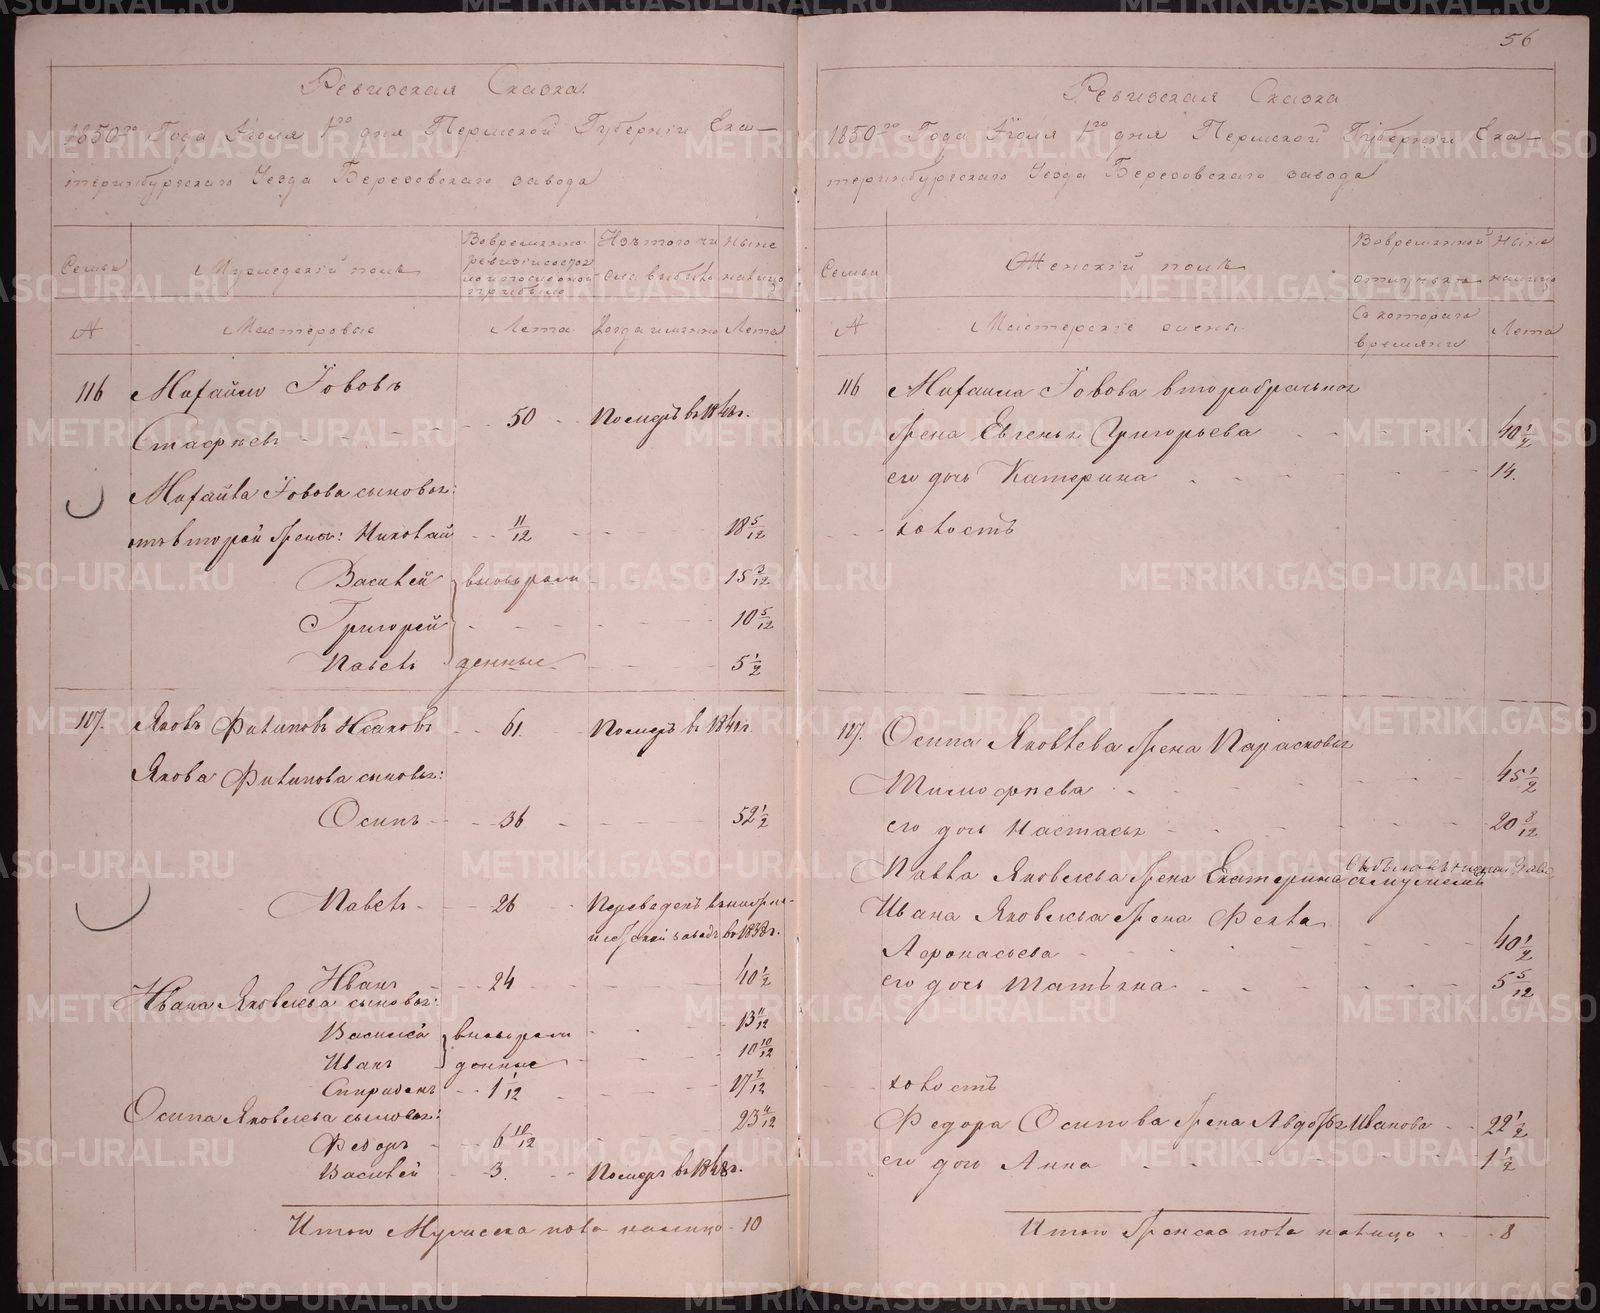 Ревизская Сказка
1850го Года Июля 1го дня Пермской Губернiи Ека-
теринбургскаго Уезда Березовскаго завода
Семьи
Мужескiй полъ
Изътого чи
Ныне
сла выбыло
налицо
№
Мастеровые
Лета
Когда именно
Лета
116
Михайло Iововъ
Стафѣевъ
50
Померъ в 1848г.
Михайла Iовова сыновья:
отъ второй жены: Николай
11/12
18 5/12
Василей
вновь рож
15 3/12
Григорей
10 5/12
Павелъ
денные
5 1/2
117.
Яковъ Филиповъ Исаковъ
61.
Померъ в 1841г.
Якова Филипова сыновья:
Осипъ
36
52 1/2
Павелъ
26
Переведенъ
заводъ в 1838г.
Иванъ
24
40 1/2
Ивана Яковлева сыновья:
Василей
вновь рож
13 11/12
Иванъ
денные
10 10/12
Спиридонъ
1 1/12
17 7/12
Осипа Яковлева сыновья:
23 4/12
Федоръ
6 10/12
Василей
3.
Померъ в 1848г.
Итого Мужеска пола налицо - 10
56
Ревизская Сказка
1850го Года Июля 1го дня Пермской Губернiи Ека-
теринбургскаго Уезда Березовскаго завода
Семьи
Женскiй полъ
Вовременной
Ныне
отлучкѣ
налицо
№
Мастерскiе жены
Съ котораго
времяни
Лета
116
Михаила Iовова второбрачная
жена Евгенья Григорьева
40 1/2
его дочь Катерина
14.
холостъ
117.
Осипа Яковлева жена Парасковья
Тимофеева
45 1/2
его дочь Настасья
20 8/12
Павла Яковлева жена Екатерина
съ мужемъ
Ивана Яковлева жена Фекла
Афонасьева
40 1/2
его дочь Татьяна
5 5/12
холостъ
Федора Осипова жена Авдотья Иванова
22 1/2
его дочь Анна
1 1/2
Итого Женска пола налицо
8
METRIKI.GASO-URAL.RU